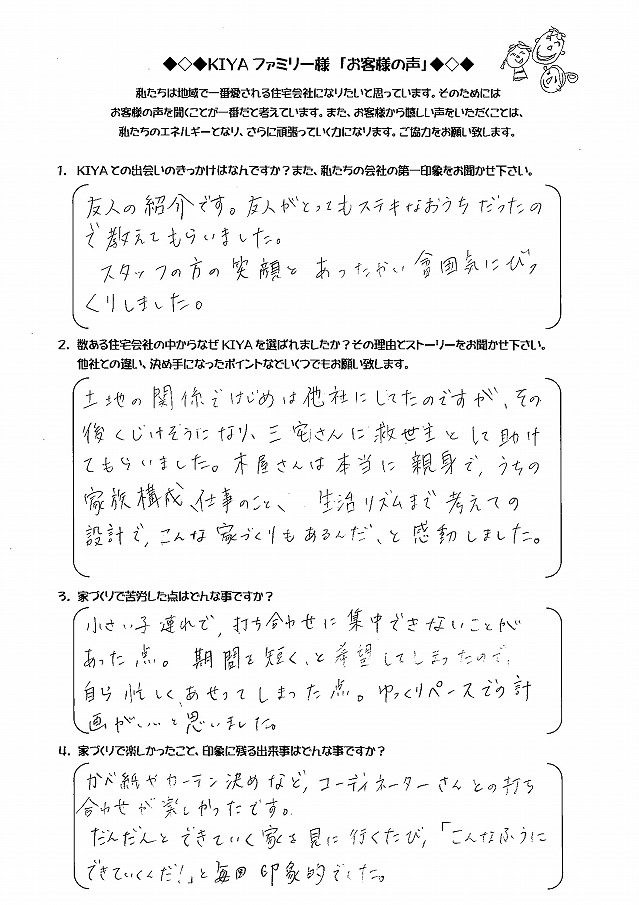 ◆◇◆KIYA ファミリー様 「お客様の声」◆◇◆
私たちは地域で一番愛される住宅会社になりたいと思っています。そのためには
お客様の声を聞くことが一番だと考えています。また、お客様から嬉しい声をいただくことは、
私たちのエネルギーとなり、さらに頑張っていく力になります。ご協力をお願い致します。
1. KIYAとの出会いのきっかけはなんですか?また、私たちの会社の第一印象をお聞かせ下さい。
友人の紹介です。友人がとってもステキなおうちだったの
で教えてもらいました。
スタッフの方の笑顔と あったかい雰囲気にびっ
くりしました。
2. 数ある住宅会社の中からなぜKIYAを選ばれましたか?その理由とストーリーをお聞かせ下さい。
他社との違い、決め手になったポイントなどいくつでもお願い致します。
土地の関係ではじめは他社にしてたのですが、その
後くじけそうになり、三宅さんに救世主として助け
てもらいました。木屋さんは本当に親身で、うちの
家族構成、仕事のこと、生活リズムまで考えての
設計で、こんな家づくりもあるんだ、と感動しました。
3. 家づくりで苦労した点はどんな事ですか?
小さい子連れで、打ち合わせに集中できないことが
あった点。期間を短く、と希望してしまったので、
自ら忙しく、あせってしまった点。ゆっくりペースでの計
画がいいと思いました。
4. 家づくりで楽しかったこと、印象に残る出来事はどんな事ですか?
かべ紙やカーテン決めなど、コーディネーターさんとの打ち
合わせが楽しかったです。
だんだんとできていく家を見に行くたび、「こんなふうに
できていくんだ!」と毎回印象的でした。